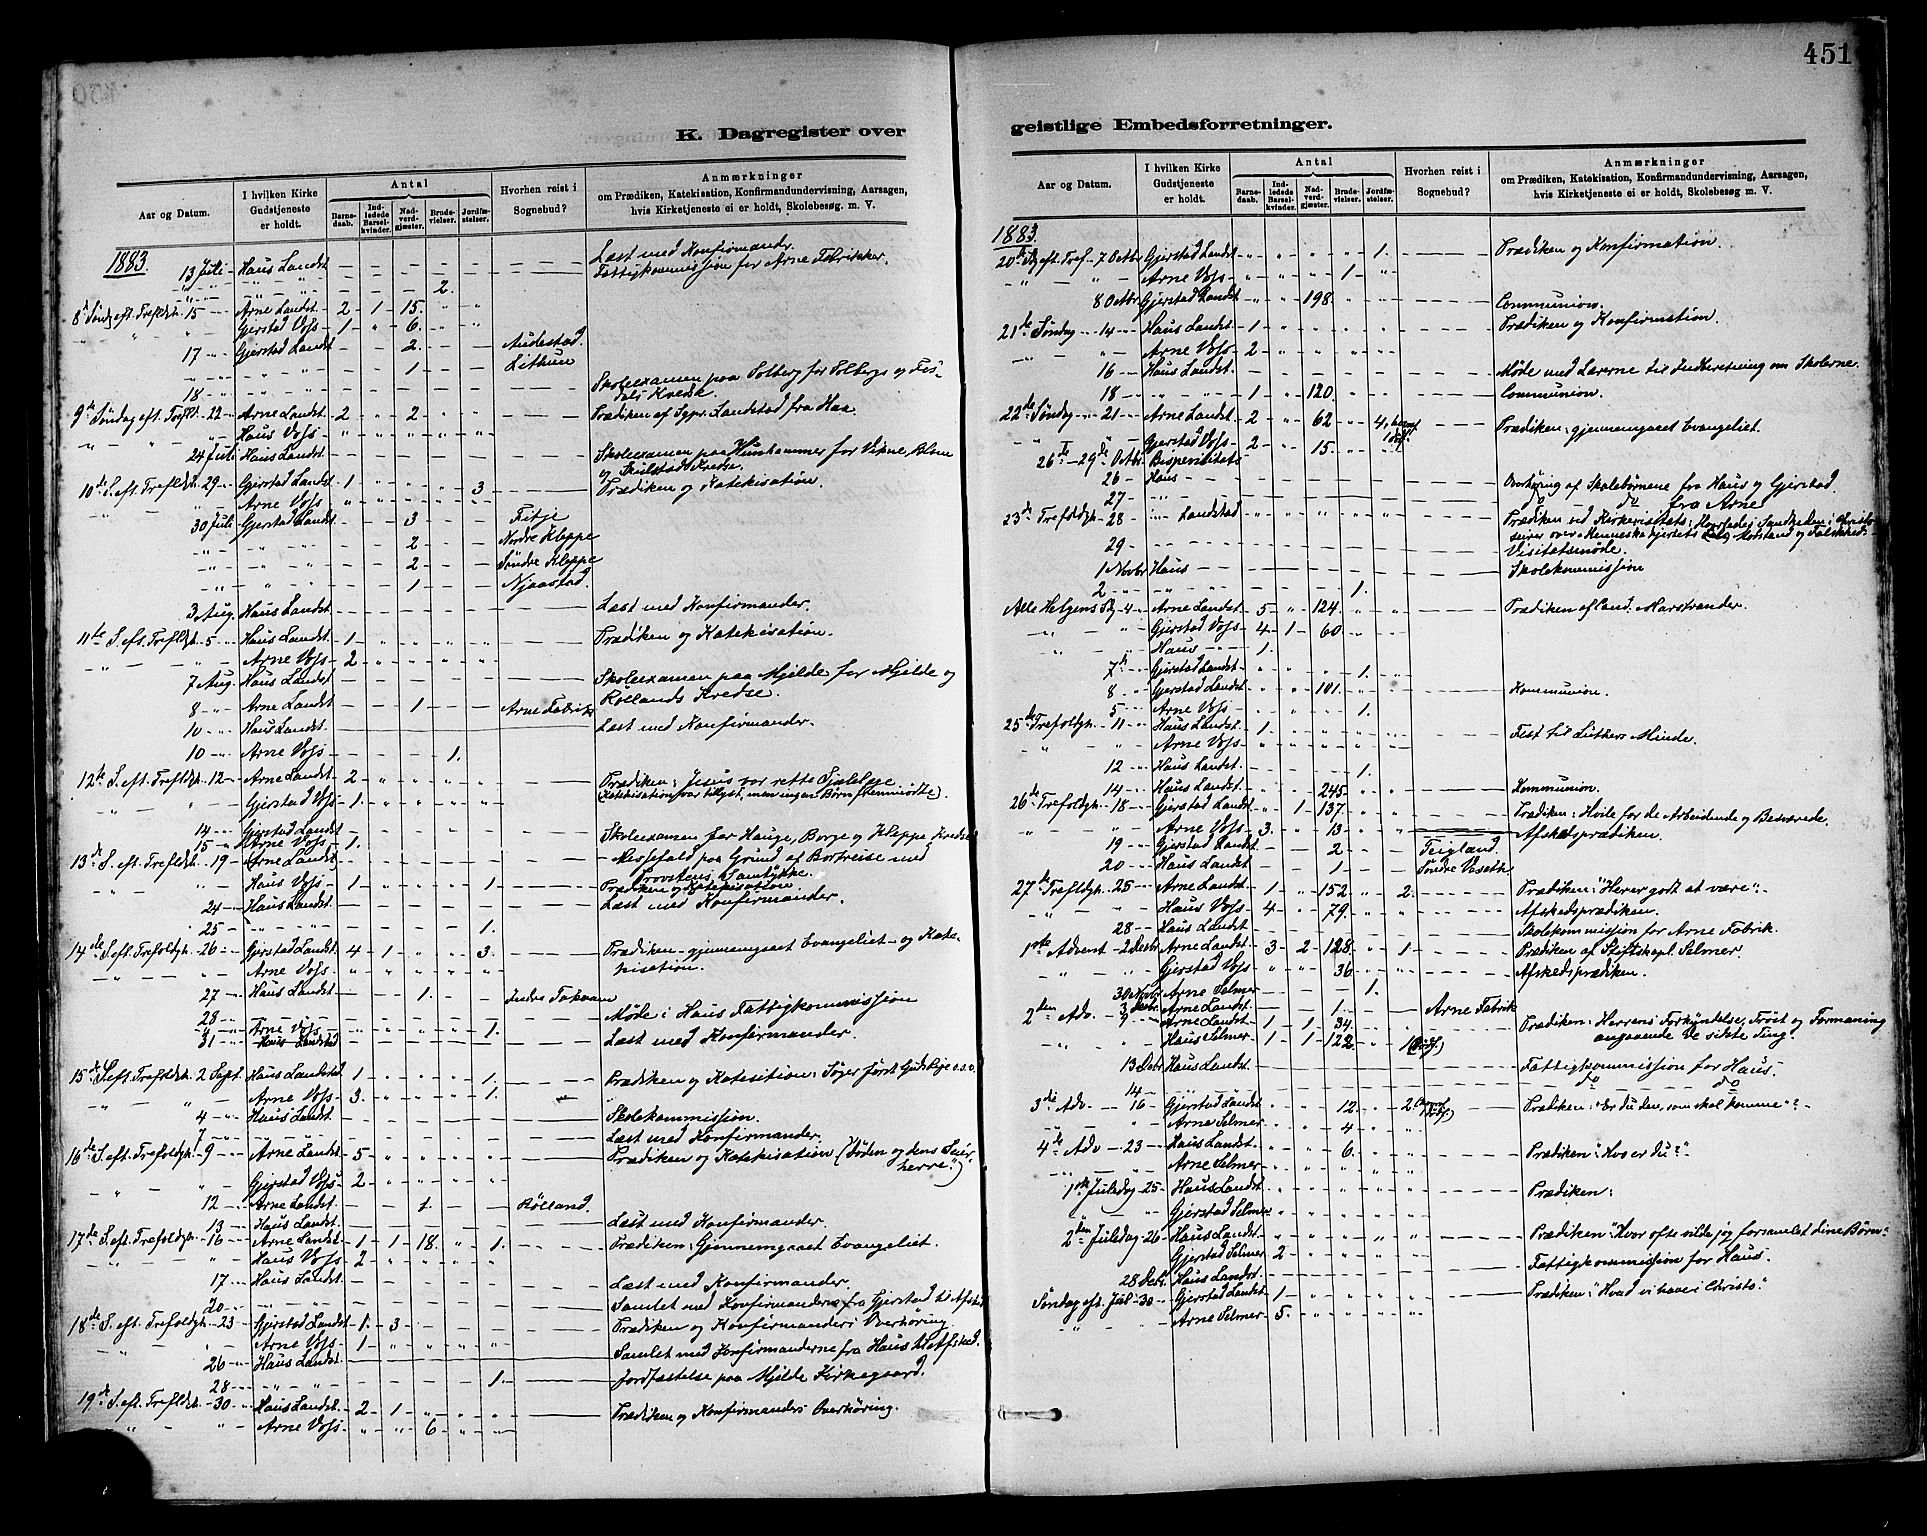 451
K. Dagregister over
Aar og Datum.
I hvilken Kirke Gudstjeneste er holdt.
Antal
Barne-daab.
Ind-ledede Barsel-kvinder.
Nad-verd-gjæster.
Brude-vielser.
Jordfæ-stelser.
Hvorhen reist i Sognebud?
Anmærkninger
om Prædiken, Katekisation, Konfirmandundervisning, Aarsagen,
hvis Kirketjeneste ei er holdt, Skolebesøg m. V.
1883. 13 Juli Haus Landst — — — — — — Læst med Konfirmander.
Fattigkommission for Arne Fabrikker.
" " " 2.
8de Søndg eft. Trefldgh. 15 Arne Landst 2 1 15. " "
" " Gjerstad Voss 1 " 6. " "
17 Gjerstad Landst — — 2. — — Audestad.
" " — — 1. — — Lithun
18 — — — — — — Skoleexamen paa Solberg for Solbergs og
Kreds
9de Søndag eft. Trefld. 22 Arne Landst. 2 " 2 " " Prædiken af Sgpr. Landstad fra Haa
" " Haus Voss " " " " "
24 Juli Haus Landst — — — — — — Skoleexamen paa for Vikne, Blom
og Skulstad Kredse.
10de S. eft. Trefldgh. 29 Gjerstad Landst 1 " " " 3 — Prædiken og Katekisation.
" " Arne Voss " " " " "
30 Juli Gjerstad Landst — — 3 — — Fitje
" " — — 2 — — Nordre Kleppe
" " — — 2 — — Søndre Kleppe
" " — — 1 — — Njaastad.
3 Aug. Haus Landst — — — — — — Læst med Konfirmander.
11te S. eft. Trefldgh. 5 Haus Landst. 1 " " " " Prædiken og Katekisation.
" " Arne Voss 2 " " " "
7 Aug. Haus Landst — — — — — — Skoleexamen paa Mjelde for Mjelde og
Røllands Kredse.
8 Arne Landst — — 1 — — Arne Fabrik
10 Haus Landst. — — — — — — Læst med Konfirmander.
10 Arne Voss — — — 1.
12te S. eft. Trefldgh. 12 Arne Landst. 2 " " " " — Prædiken: Jesus vor rette Sjælelæge
(Katekisation var tillyst, men ingen Børn fremmødte).
" " Gjerstad Voss 1. " " " "
14 Gjerstad Landst — — — — — — Skoleexamen for Hauge, Borge og Kleppe Kredse
15 Arne Voss 1.
13de S. eft. Trefldgh. 19 Arne Landst — — — — — — Messefald paa Grund af Bortreise med
Provstens Samtykke.
" " Haus Voss 1 " " " 1. Prædiken og Katekisation
24 Haus Landst. — — — — — — Læst med Konfirmander.
25 " " — — — — 1.
14de S. eft. Trefoldgh. 26 Gjerstad Landst 4 1 " " 3. — Prædiken gjennemgaaet Evangeliet og Kate-
kisation.
" " Arne Voss " " " " "
27 Haus Landst. — — 1. — — Indre Takvam
28 — — — — — — Møde i Haus Fattigkommission
" Arne Voss " " " " 1.
31 Haus Landstad — — — — — — Læst med Konfirmander.
15de S. eft. Trefoldgh. 2 Sept. Haus Landstad 1 " " " 1. — Prædiken og : Søger først Guds Rige o.s.v.
" " Arne Voss 3. " " " 1.
4 Haus Landst. — — — — — — Skolekommission.
7 — — — — — — Læst med Konfirmander.
16de S. eft. Trefoldgh. 9 Arne Landst 5 " " " " — Prædiken og Katekisation (Døden og dens Seier-
herre.)
" " Gjerstad Voss 2 " " " "
12 Arne Landst. — — 1. — — Rølland.
13 Haus Landst. — — — — — — Læst med Konfirmander.
17de S. eft. Trefoldgh. 16 Arne Landst 1 1 18. " 1. — Prædiken: Gjennemgaaet Evangeliet.
" " Haus Voss 2 " " " "
17 Haus Landst. — — — — — — Læst med Konfirmander.
20 " " — — — — — — Samlet med Konfirmanderne fra Gjerstad til Afsked
18de S. eft. Trefoldgh. 23 Gjerstad Landst 1. 3 " " " — Prædiken og Konfirmanders Overhøring.
" " Arne Voss 1 " " " "
26 Haus Landst. — — — — — — Samlet med Konfirmanderne fra Haus til Afsked.
28 " " — — — — 1. — Jordfæstelse paa Mjelde Kirkegaard.
19de S. eft. Trefldgh. 30 Haus Landst. 2 1 " " " — Prædiken og Konfirmanders Overhøring.
" " Arne Voss " " 6 " "
geistlige Embedsforretninger.
Aar og Datum.
I hvilken Kirke Gudstjeneste er holdt.
Antal
Barne-daab.
Ind-ledede Barsel-kvinder.
Nad-verd-gjæster.
Brude-vielser.
Jordfæ-stelser.
Hvorhen reist i Sognebud?
Anmærkninger
om Prædiken, Katekisation, Konfirmandundervisning, Aarsagen,
hvis Kirketjeneste ei er holdt, Skolebesøg m. V.
1883.
20de Sg eft. Tref. 7 Octbr Gjerstad Landst " " " " 1. — Prædiken og Konfirmation.
" " Arne Voss " " " 1 "
8 Octbr. Gjerstad Landst " " 198. " " — Communion.
21de Søndag 14 Haus Landst. 1 " " " " — Prædiken og Konfirmation.
" " Arne Voss 2 " " " "
16 Haus Landst. — — — — — — Møde med Lærerne til Indberetning om Skolerne.
18 " " 1 — 120. — — — Communion.
22de Søndag 21 Arne Landst. 2 " 62 " 4, — Prædiken: gjennemgaaet Evangeliet.
" " Gjerstad Voss 2 " 15. " "
26de — 29de Octbr. Bispevisitats
26 Haus — — — — — — Overhøring af Skolebørnene fra Haus og Gjerstad.
27 " — — — — — — do — do fra Arne
23de Trefoldgh. 28 " Landstad — — — — — — Prædiken ved Kirkevisitats: Sandheden i Christo
seirer over Menneskehjertets Modstand og Falskhed.
29 — — — — — — Visitatsmøde.
1 Novbr. Haus — — — — — — Skolekommission
2 " " — — — 1.
Alle Helgens Dg. 4 Arne Landst. 5 " 124. " " — Prædiken af Cand. Marstrander.
" " Gjerstad Voss 4 1 60. " "
" " Haus 1.
7de Gjerstad Landst. " " " 1.
8 Gjerstad Landst. " " 101. " " — Kommunion.
5 Arne Voss — — — 1.
25de Trefoldgh. 11 Haus Landst. 1 " " " " — Fest til Luthers Minde.
" " Arne Voss " " " " "
12 Haus Landst. — — — 1.
14 Haus Landst. — — 245. " " — Kommunion.
26de Trefoldgh. 18 Gjerstad Landst " 1 137. " " — Prædiken: Hvile for de Arbeidende og Besværede.
" " Arne Voss 3. " 13 " " — Afskedsprædiken.
19 Gjerstad Landst — — 2 — — Teigland.
20 Haus Landst — — 1 — — Søndre Vaseth
27de Trefoldgh. 25 Arne Landst. 1 " 152 " 2. — Prædiken: "Her er godt at være".
" " Haus Voss 4 " 79. " " — Afskedsprædiken.
28 Haus Landst — — — — — — Skolekommission for Arne Fabrik.
1ste Advent 2 Decbr. Arne Landst. 3 2 128. " 1 — Prædiken af Stiftskapl. Selmer.
" " Gjerstad Voss " " 36 " " — Afskedsprædiken.
30 Novbr Arne Selmer — — — 1.
3 Decbr. Arne Landst. — — 1. — — Arne Fabrik
2den Adv. 9 Arne Landst. 1 1 34. " " — Prædiken: Herrens Forkyndelse, Trøst og Formaning
angaaende de sidste Ting.
" " Haus Selmer 1 1 122. " 1
13 Decbr. Haus Landst. — — — — — — Fattigkommission for Haus.
14 — — — — — — do — do
3de Adv. 16 Gjerstad Landst. " " 12. " 2. — Prædiken: "Er du den, som skal komme"?
" " Arne Selmer " " 4 " "
4de Adv 23 Haus Landst. " " 6. " " — Prædiken "Hvo er du?"
" " Arne Selmer " " " " "
1ste Juledag 25 Haus Landst " " " " " — Prædiken:
" " Gjerstad Selmer " " " " "
2den Juledag 26 Haus Landst " " " " " — Prædiken: "Hvor ofte vilde jeg forsamlet dine Børn"
" " Gjerstad Selmer 2 " " " "
28 Decbr. Haus Landst. — — — — — — Fattigkommission for Haus.
Søndag eft. Jul 30 Gjerstad Landst. 1 " " " " — Prædiken: "Hvad vi have i Christo".
" " Arne Selmer 5. " " " "